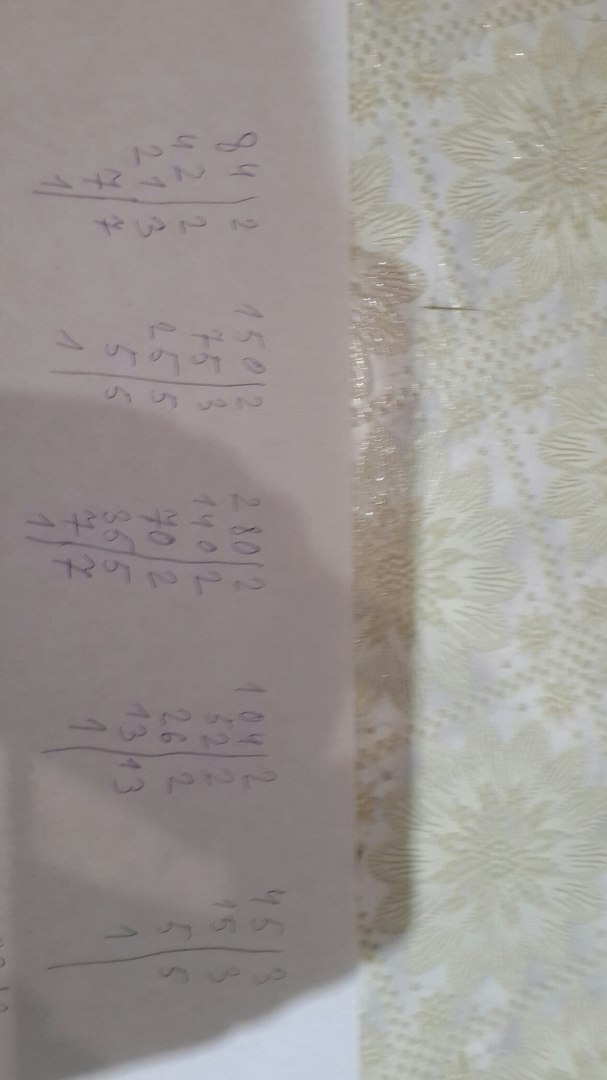 84|2
42|2
21|3
7|7
1|
150|2
75|3
25|5
5|5
1|
280|2
140|2
70|2
35|5
7|7
1|
104|2
52|2
26|2
13|13
1|
45|3
15|3
5|5
1|